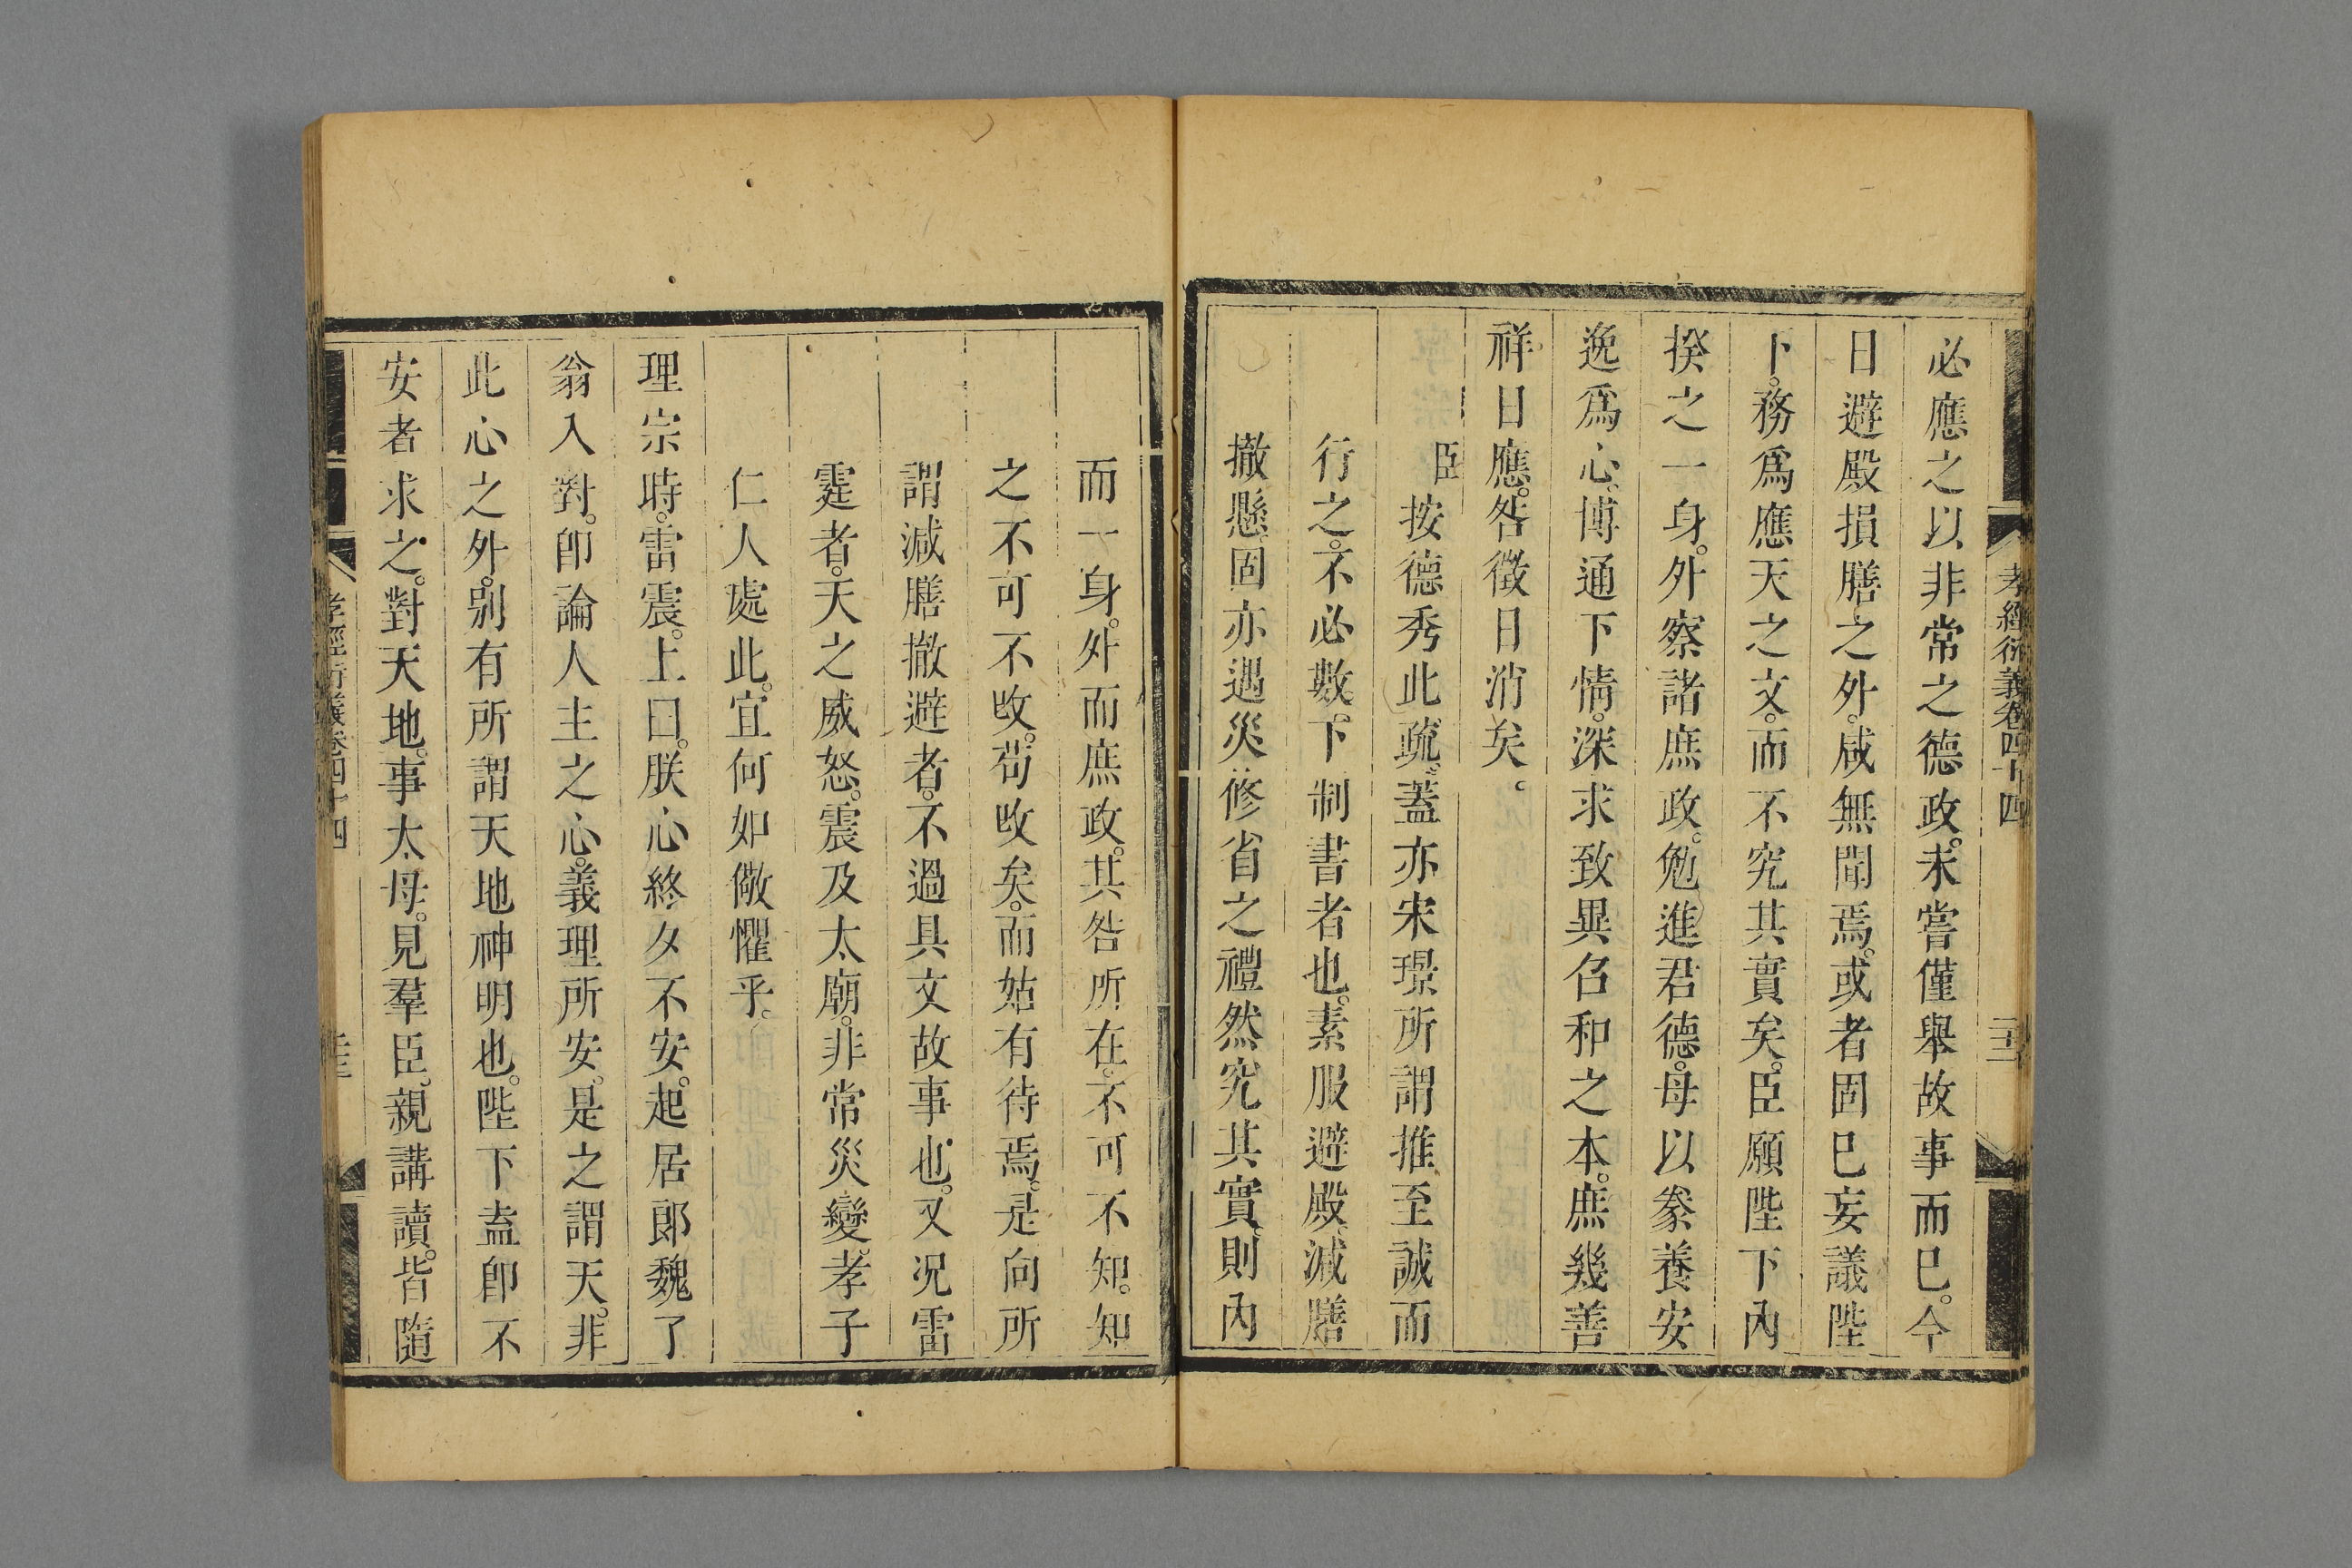 孝經衍義卷四十四
必應之以非常之德政。未嘗僅舉故事而已。今
日避殿損膳之外。咸無聞焉。或者固已妄議陛
下。務爲應天之文。而不究其實矣。臣願陛下內
揆之一身。外察諸庶政。勉進君德。毋以豢養安
逸爲心。博通下情。深求致異召和之本。庶幾善
祥日應。咎徵日消矣。
臣按德秀此疏。蓋亦宋璟所謂推至誠而
行之。不必數下制書者也。素服避殿、減膳
撤懸。固亦遇災修省之禮然究其實、則內
而一身。外而庶政。其咎所在。不可不知。知
之不可不改。苟改矣。而姑有待焉。是向所
謂減膳撤避者。不過具文故事也。又况雷
霆者。天之威怒。震及太廟。非常災變。孝子
仁人處此。宜何如儆懼乎。
理宗時。雷震。上曰。朕心終夕不安。起居郞魏了
翁入對。卽論人主之心。義理所安。是之謂天。非
此心之外。別有所謂天地神明也。陛下盍卽不
安者求之。對天地。事太母。見羣臣。親講讀。皆隨
孝經衍義卷四十四